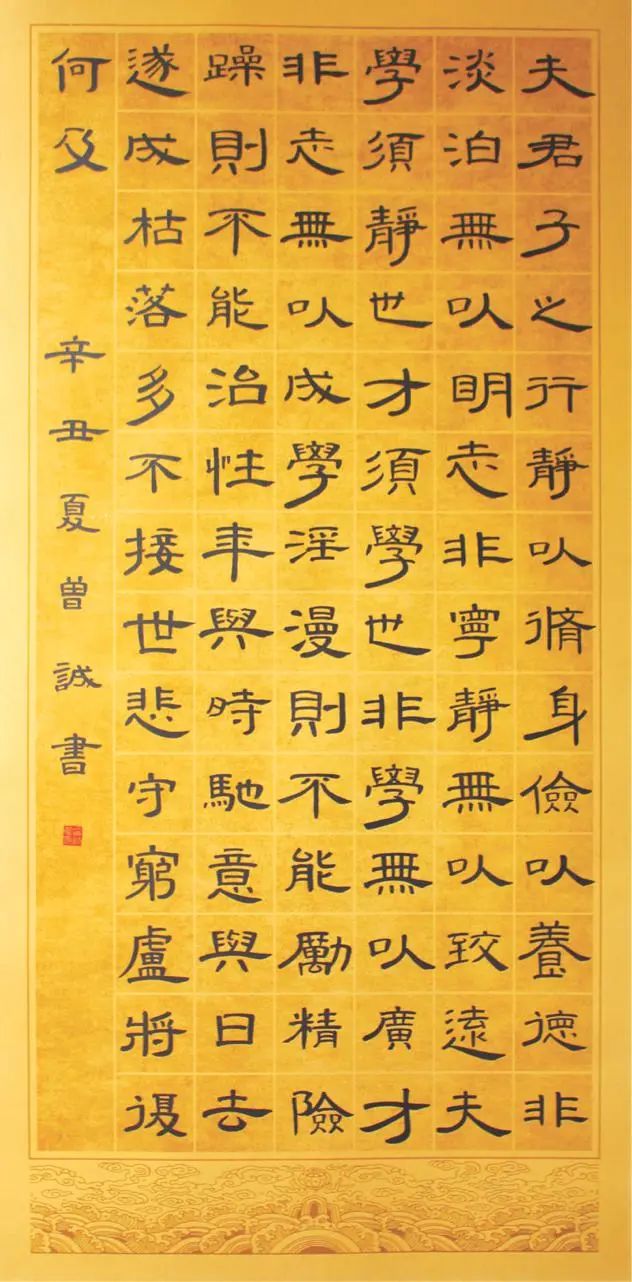 夫君子之行靜以脩身儉以養德非
淡泊無以眀志非寧靜無以致遠夫
學須靜也才須學也非學無以廣才
非志無以成學淫漫則不能勵精險
躁則不能治性年與時馳意與日去
遂成枯落多不接世悲守窮盧將復
何及
辛丑夏曾誠書